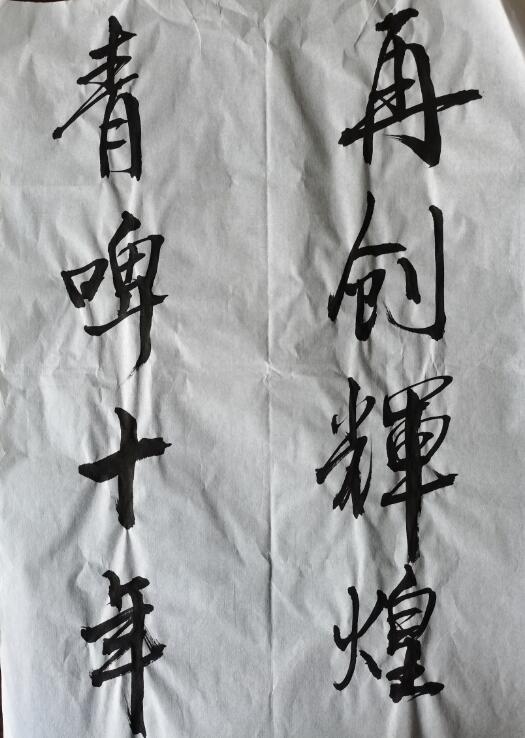 青啤十年
再创輝煌